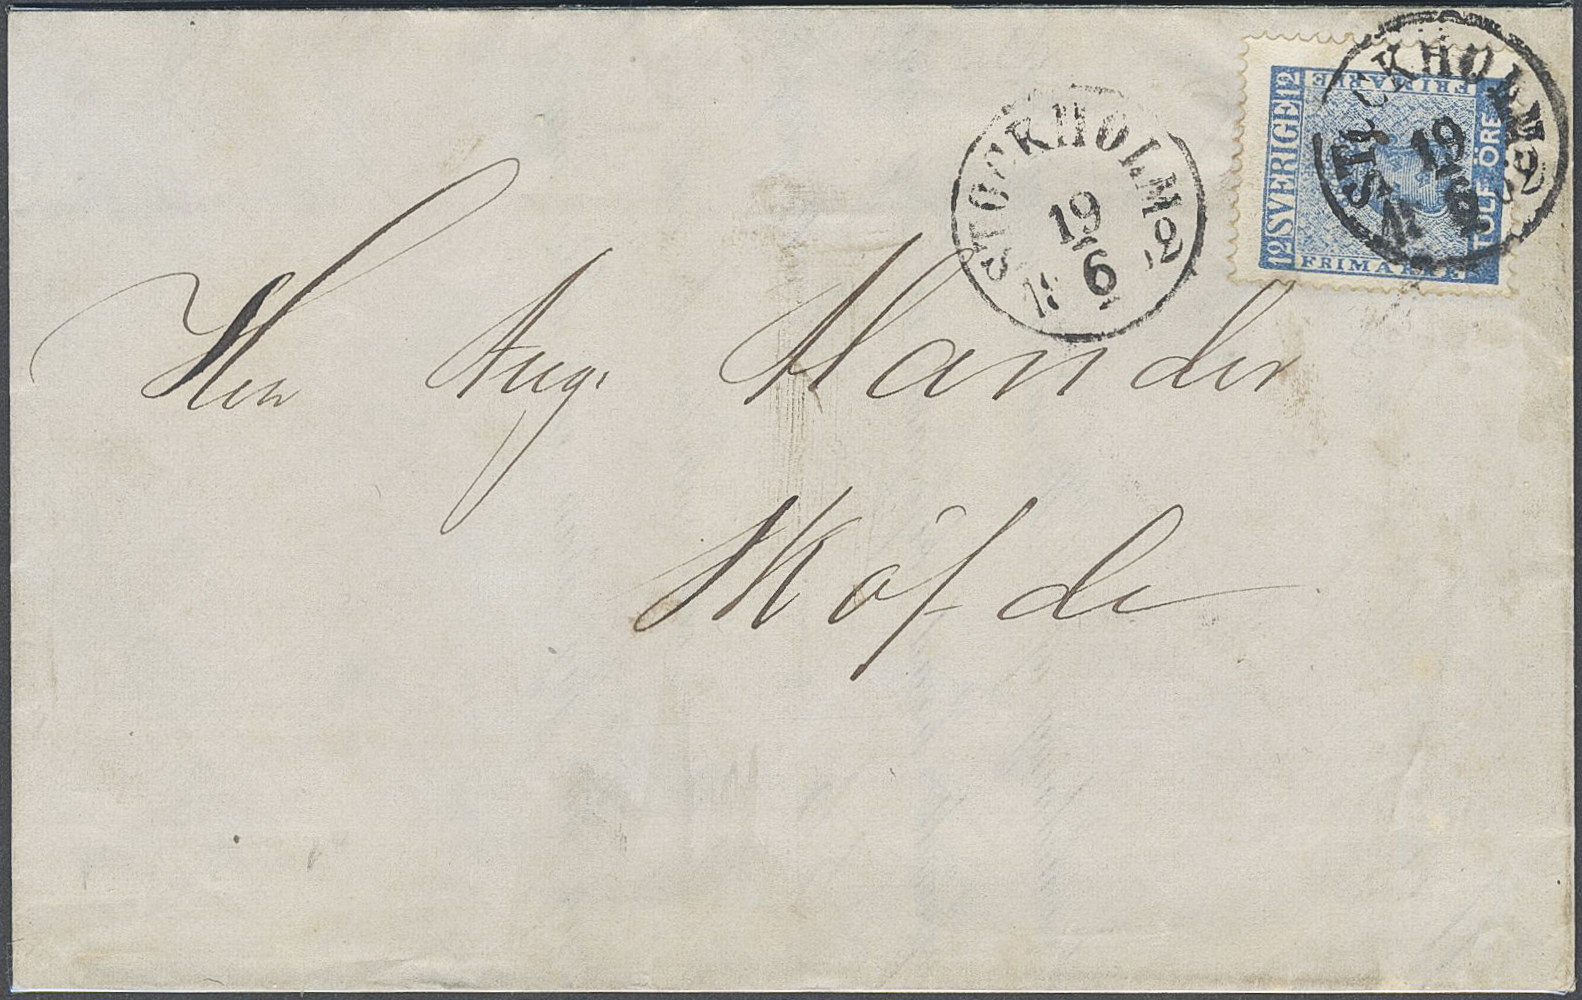 STOCKHOLM
19
6
12 SVERIGE 12
FRIMÄRKE
TOLF ÖRE
FRIMÄRKE
STOCKHOLM
19
6
Herr Aug. Hander
Sköfde